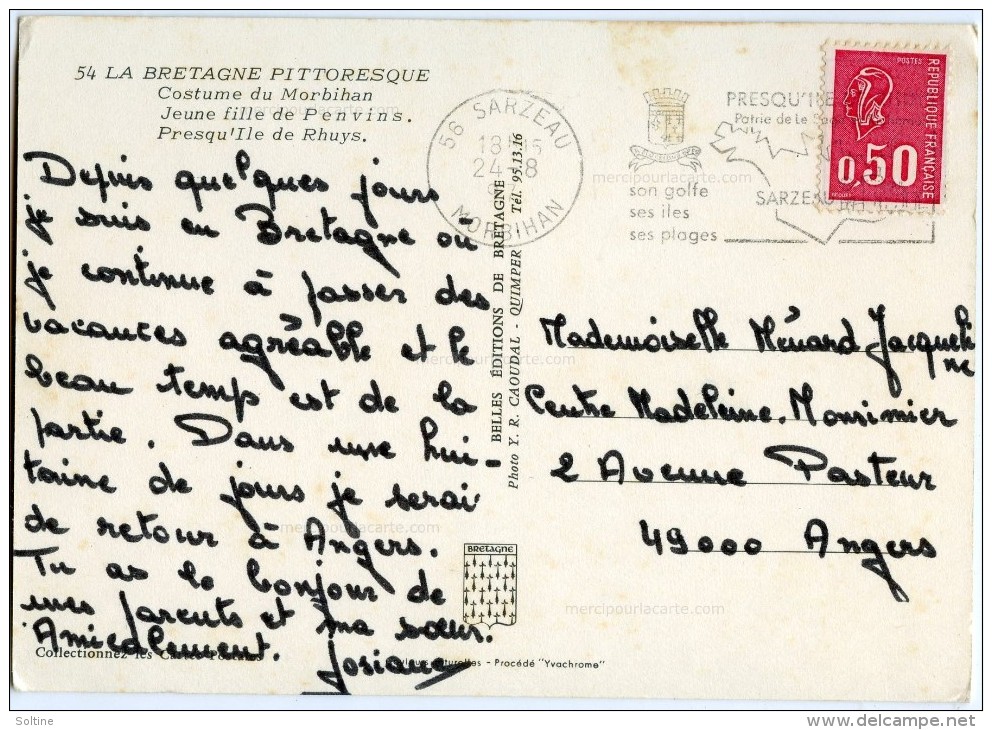 54 LA BRETAGNE PITTORESQUE
Costume du Morbihan
Jeune fille de Penvins.
Presqu'Ile de Rhuys.
Depuis quelques jours
je suis en Bretagne où
je continue à passer des
vacances agréable et le
beau temps est de la
partie. Dans une hui-
taine de jours je serai
de retour à Angers.
Tu as le bonjour de
mes parents et ma sœur.
Amicalement.
Josiane
Collectionnez les Cartes Postales
BELLES ÉDITIONS DE BRETAGNE
Photo Y. R. CAOUDAL - QUIMPER Tél. 95.13.16
BRETAGNE
- Procédé "Yvachrome"
56 SARZEAU
24-8
MORBIHAN
PRESQU'ILE
Patrie de Le
son golfe
ses iles
ses plages
SARZEAU
POSTES
REPUBLIQUE FRANÇAISE
0,50
Mademoiselle Ménard Jacqueli
ne
Centre Madeleine-Monsimier
2 Avenue Pasteur
49000 Angers
mercipourlacarte.com
mercipourlacarte.com
mercipourlacarte.com
mercipourlacarte.com
mercipourlacarte.com
Soltine
www.delcampe.net